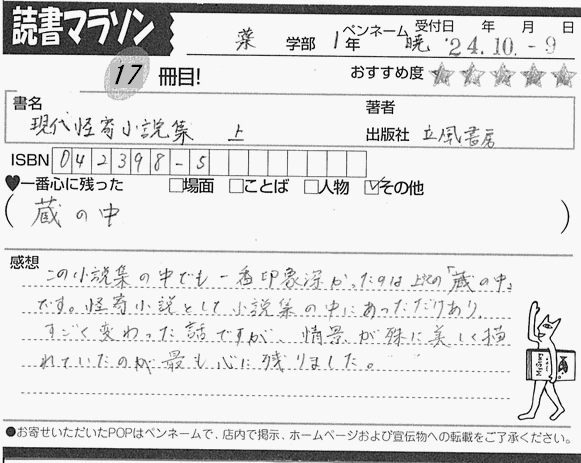 読書マラソン
受付日 年 月 日
薬 学部 1年 ペンネーム 暁 '24.10.-9
17 冊目!
おすすめ度
書名 著者
現代怪奇小説集 上
出版社 立風書房
ISBN 042398-5
一番心に残った □場面 □ことば □人物 ☑その他
(蔵の中)
感想
この小説集の中でも一番印象深かったのは上記の「蔵の中」
です。怪奇小説として小説集の中にあっただけあり、
すごく変わった話ですが、情景が殊に美しく描
れていたのが最も心に残りました。
●お寄せいただいたPOPはペンネームで、店内で掲示、ホームページおよび宣伝物への転載をご了承ください。